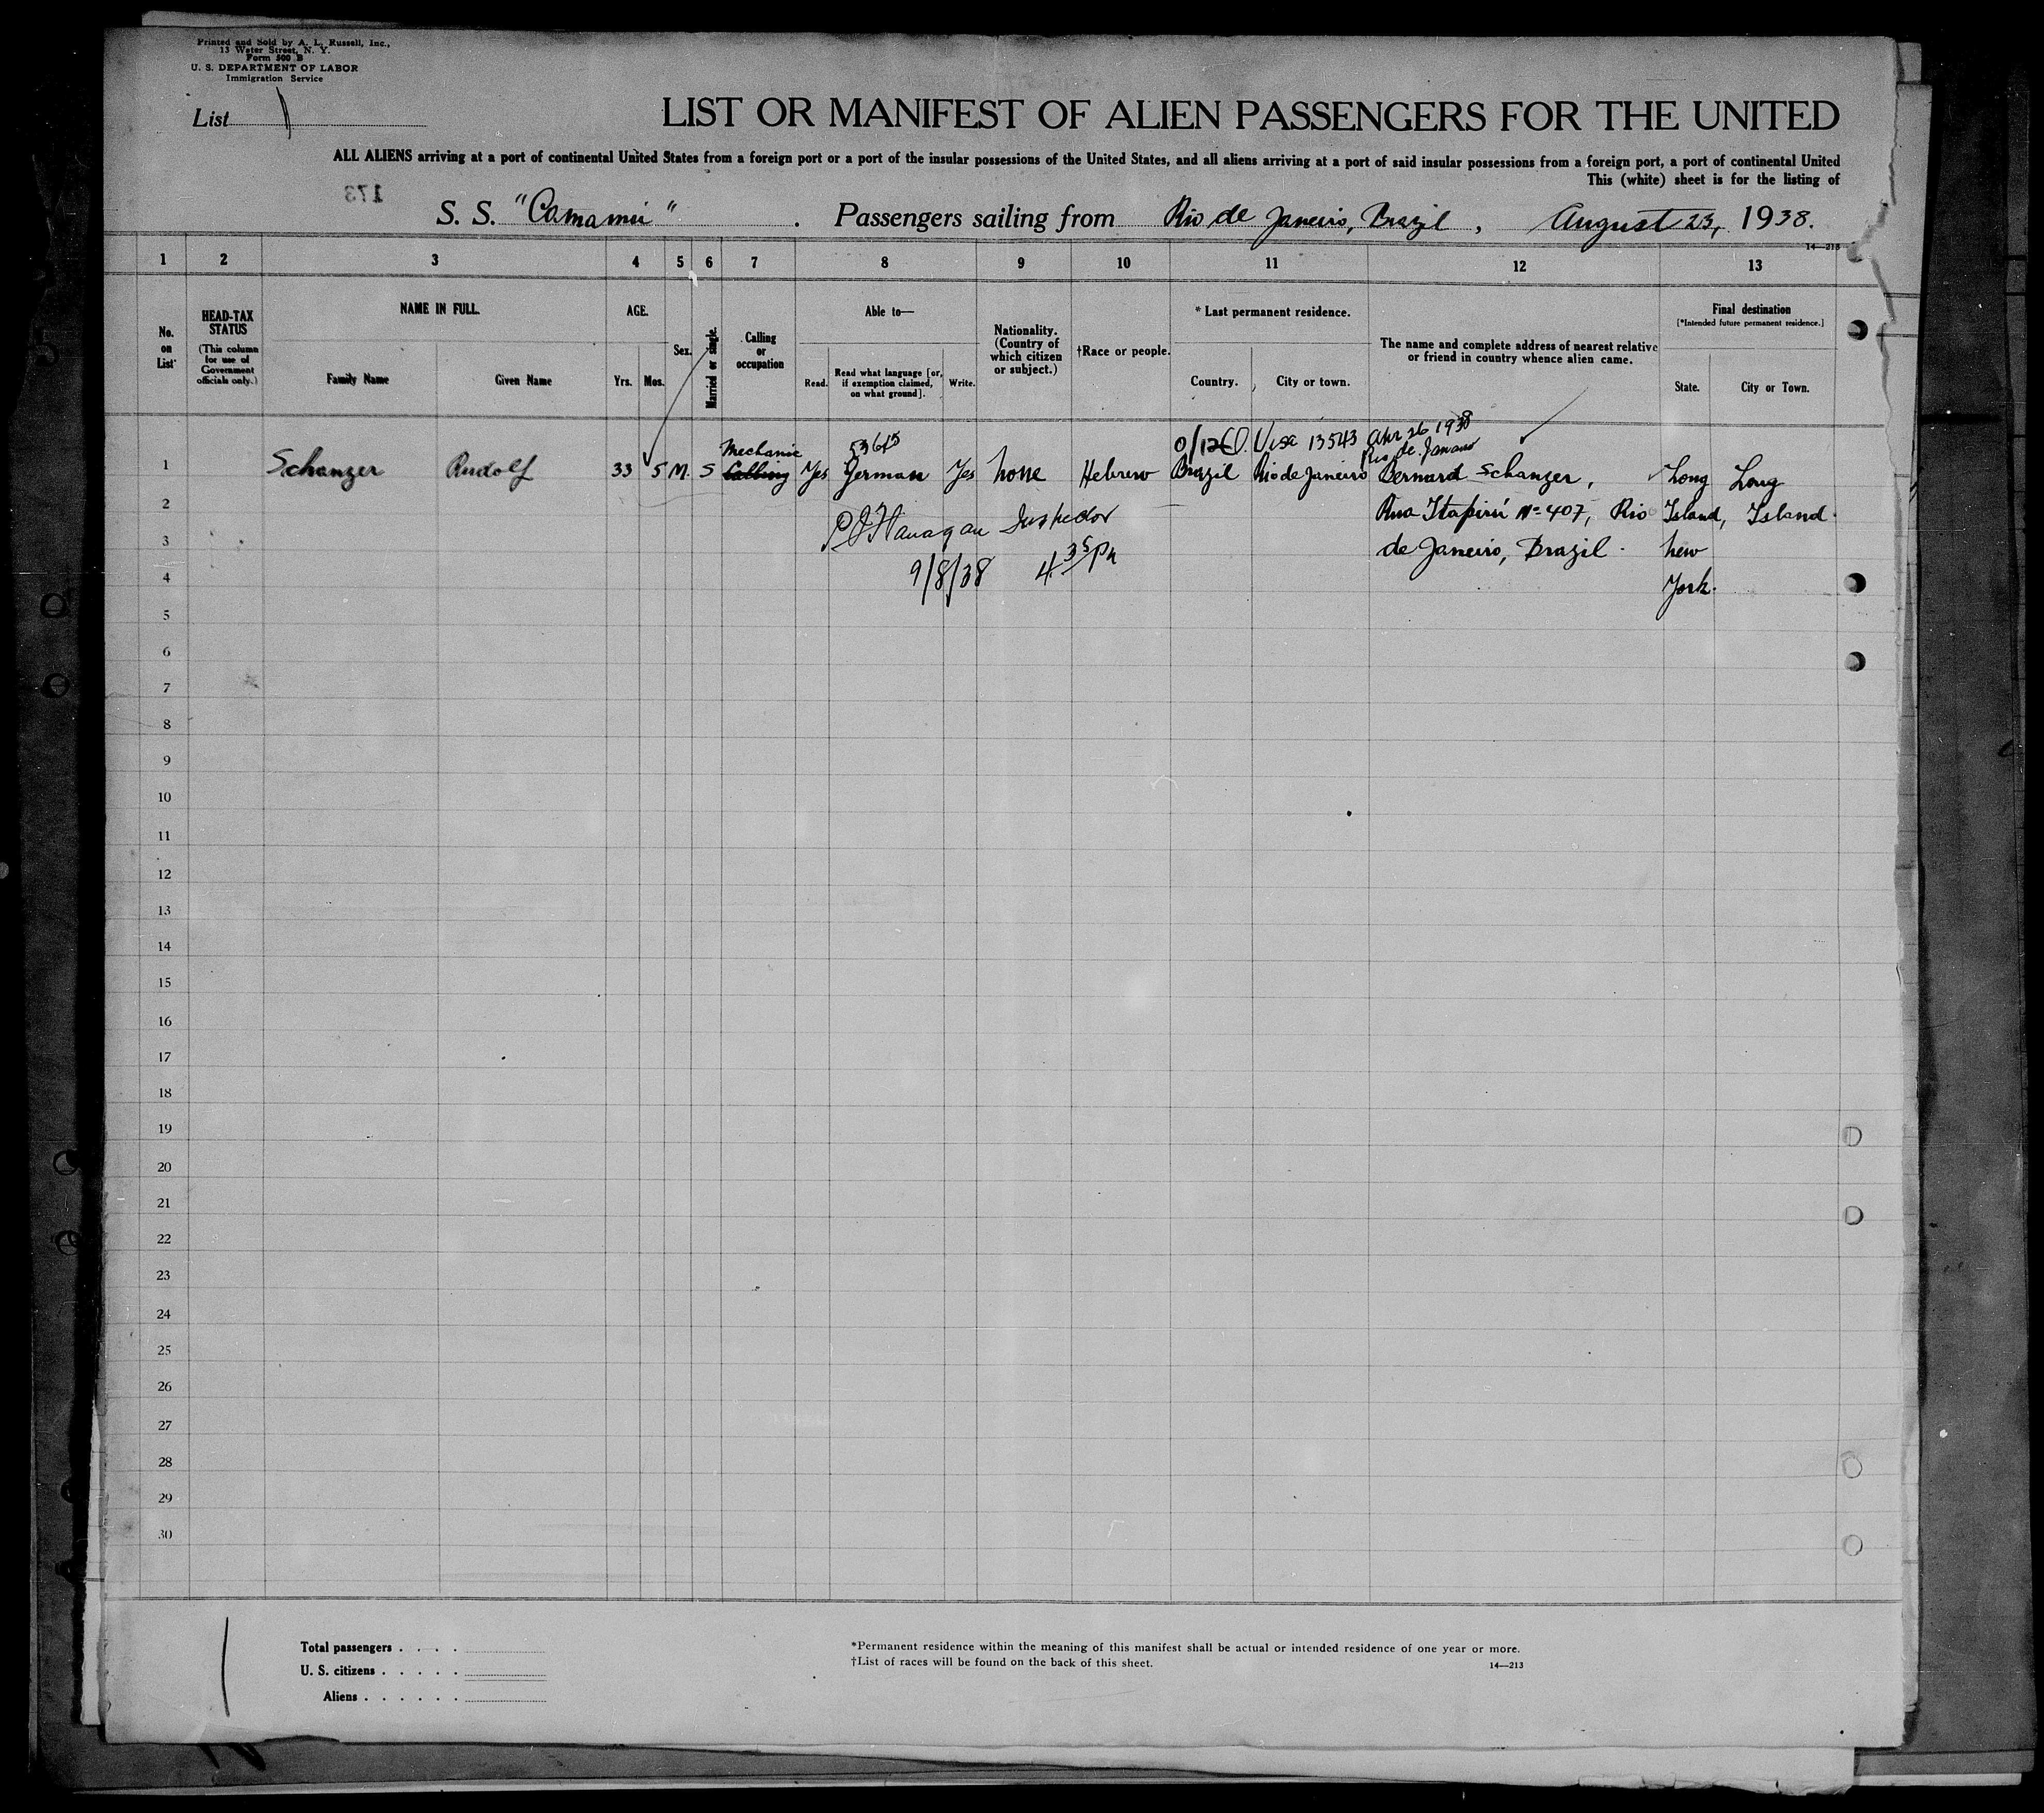 Printed and Sold by A. L. Russell, Inc.,
13 Water Street, N. Y.
Form 500 B
U. S. DEPARTMENT OF LABOR
Immigration Service
List 1
LIST OR MANIFEST OF ALIEN PASSENGERS FOR THE UNITED
ALL ALIENS arriving at a port of continental United States from a foreign port or a port of the insular possessions of the United States, and all aliens arriving at a port of said insular possessions from a foreign port, a port of continental United
This (white) sheet is for the listing of
173
S. S. "Camamu". Passengers sailing from Rio de Janeiro, Brazil, August 23, 1938.
14—213
1 2 3 4 5 6 7 8 9 10 11 12 13
No. on List
HEAD-TAX STATUS (This column for use of Government officials only.)
NAME IN FULL.
Family Name Given Name
AGE.
Yrs. Mos.
Sex.
Married or single.
Calling or occupation
Able to—
Read. Read what language [or, if exemption claimed, on what ground]. Write.
Nationality. (Country of which citizen or subject.)
†Race or people.
*Last permanent residence.
Country. City or town.
The name and complete address of nearest relative or friend in country whence alien came.
Final destination
[*Intended future permanent residence.]
State. City or Town.
Mechanic 53645 Visa 13543 Apr 26 1938
Rio de Janeiro
1 Schanzer Rudolf 33 5 M. S Calling Yes German Yes None Hebrew Brazil Rio de Janeiro Bernard Schanzer, Long Long
2 Rua Itapirú Nº 407, Rio Island, Island.
P J Flanagan Inspector
3 de Janeiro, Brazil. New
9/8/38 4 35 PM
4 York.
5
6
7
8
9
10
11
12
13
14
15
16
17
18
19
20
21
22
23
24
25
26
27
28
29
30
Total passengers . . . .
U. S. citizens . . . . .
Aliens . . . . . .
*Permanent residence within the meaning of this manifest shall be actual or intended residence of one year or more.
†List of races will be found on the back of this sheet.
14—213